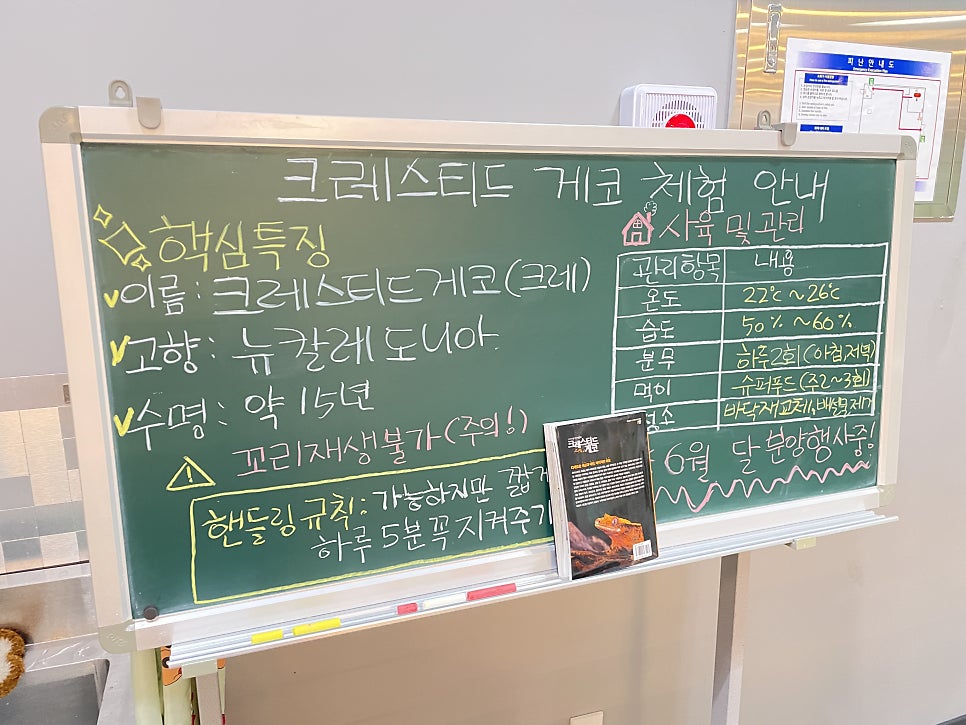 크레스티드 게코 체험 안내
핵심특징
이름: 크레스티드게코(크레)
고향: 뉴칼레도니아
수명: 약 15년
꼬리재생불가(주의!)
핸들링규칙: 가능하지만 짧게
하루 5분 꼭 지켜주기
사육 및 관리
관리항목 내용
온도 22℃~26℃
습도 50%~60%
분무 하루2회(아침저녁)
먹이 슈퍼푸드(주2~3회)
청소 바닥재교체, 배설물제거
6월 달 분양행사중!
크레스티드
게코
피난안내도
Emergency Evacuation Map